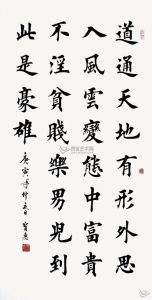 道通天地有形外思
入風雲變態中富貴
不淫貧賤樂男兒到
此是豪雄
庚寅年